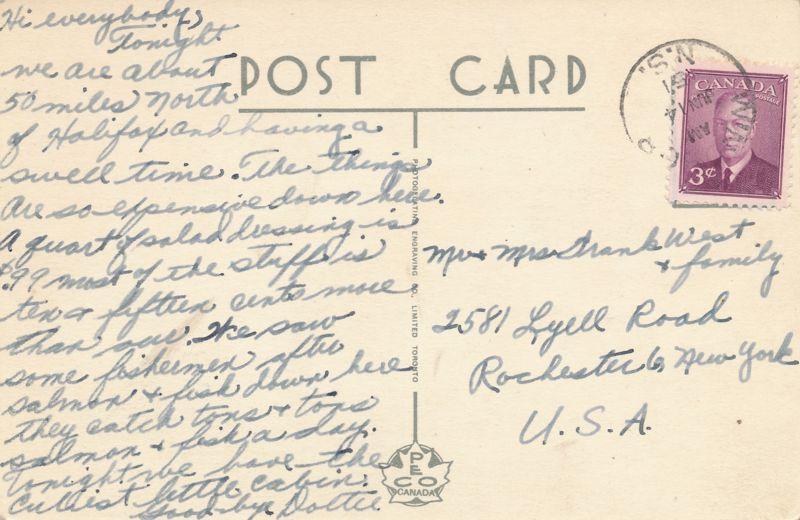 Hi everybody,
Tonight
we are about
50 miles North
of Halifax and having a
swell time. The things
are so expensive down here.
A quart of salad dressing is
$.99 most of the stuff is
ten & fifteen cents more
than ours. We saw
some fishermen after
salmon & fish down here
they catch tons & tons
salmon & fish a day.
Tonight we have the
cutiest little cabin.
Good-bye Dottie
POST CARD
PHOTOGELATINE ENGRAVING CO. LIMITED TORONTO
PECO
CANADA
N.S.
AM
JUN 14
51
CANADA
POSTES POSTAGE
3¢
Mr & Mrs Frank West
& family
2581 Lyell Road
Rochester 6, New York
U.S.A.